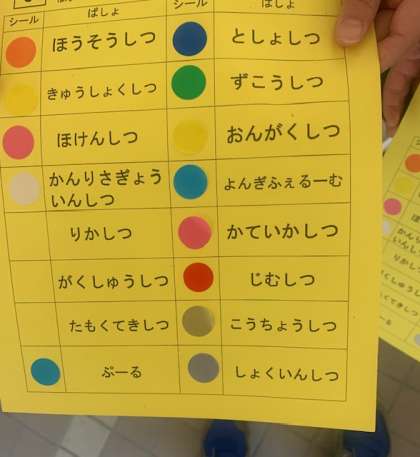 シール ばしょ シール ばしょ
ほうそうしつ としょしつ
きゅうしょくしつ ずこうしつ
ほけんしつ おんがくしつ
かんりさぎょう
いんしつ よんぎふぇるーむ
りかしつ かていかしつ
がくしゅうしつ じむしつ
たもくてきしつ こうちょうしつ
ぷーる しょくいんしつ